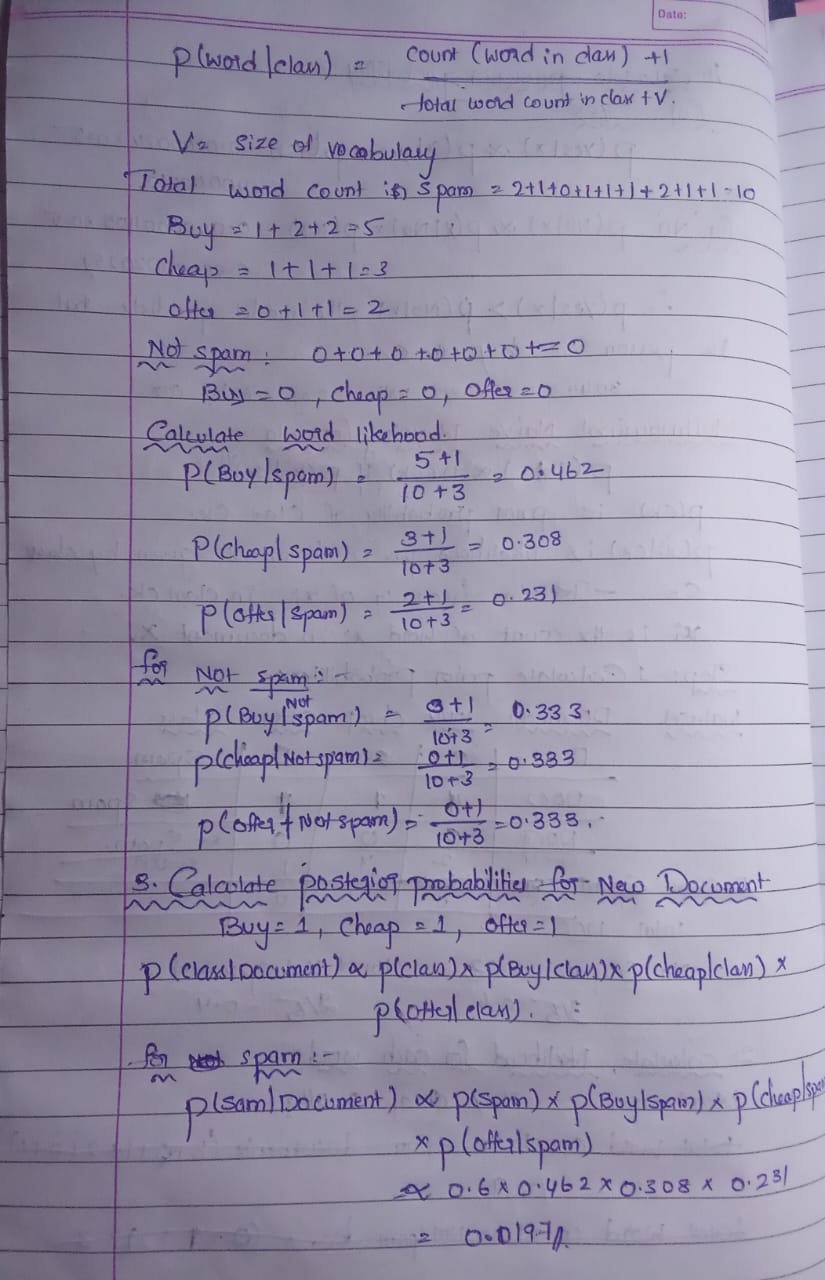 Date:
P(word/class) = Count (word in class) +1
total word count in class + V.
V = size of vocabulary
Total word count in Spam = 2+1+0+1+1+1+2+1+1=10
Buy = 1+2+2=5
Cheap = 1+1+1=3
offer = 0+1+1=2
Not spam: 0+0+0+0+0+0+=0
Buy = 0, Cheap = 0, Offer = 0
Calculate word likehood.
P(Buy/spam) = 5+1/10+3 = 0.462
P(cheap/spam) = 3+1/10+3 = 0.308
P(offer/spam) = 2+1/10+3 = 0.231
for Not spam:-
P(Buy/Not spam) = 0+1/10+3 = 0.333.
P(cheap/Not spam) = 0+1/10+3 = 0.333
P(offer/Not spam) = 0+1/10+3 = 0.333.
3. Calculate posterior probabilities for New Document
Buy = 1, Cheap = 1, Offer = 1
P(class/Document) ∝ P(class) x P(Buy/class) x P(cheap/class) x
P(offer/class).
for spam:-
P(Sam/Document) ∝ P(spam) x P(Buy/spam) x P(cheap/spam
x P(offer/spam)
∝ 0.6 x 0.462 x 0.308 x 0.231
= 0.0197